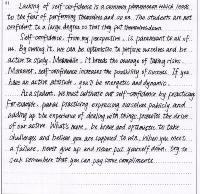 Lacking of self-confidence is a common phenomenon which leads
to the fear of performing themselves and so on. The students are not
confident to a large degree so that they put themselves down.
Self-confidence, from my perspective, is paramount to all of
us. By owning it, we can be optimistic to perform ourselves and be
active to study. Meanwhile, it breaks the courage of taking risks.
Moreover, self-confidence increase the possibility of success. If you
have an active attitude, you'd be energetic and dynamic.
As a student, we must cultivate our self-confidence by practicing.
For example, ponder practicing expressing ourselves publicly and
adding up the experience of dealing with things, promotes the drive
of our active. What's more, be brave and optimistic to take
challenges and believe you are supposed to win. When you meet
a failure, never give up and never put yourself down, try to
remember that you can pay some compliments.